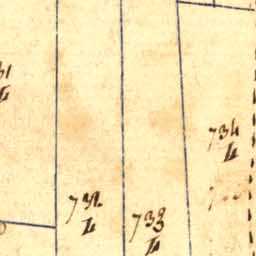 31
L
734
L
732
L
733
L